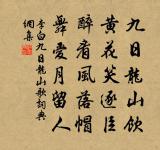 九日龍山飲
黃花笑逐臣
醉看風落帽
舞愛月留人
李白九日龍山歌詞典
網集